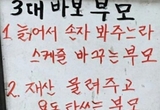 3대 바보 부모
1. 늙어서 손자 봐주느라
스케줄 바꾸는 부모
2. 재산 물려주고
용돈 타쓰는 부모